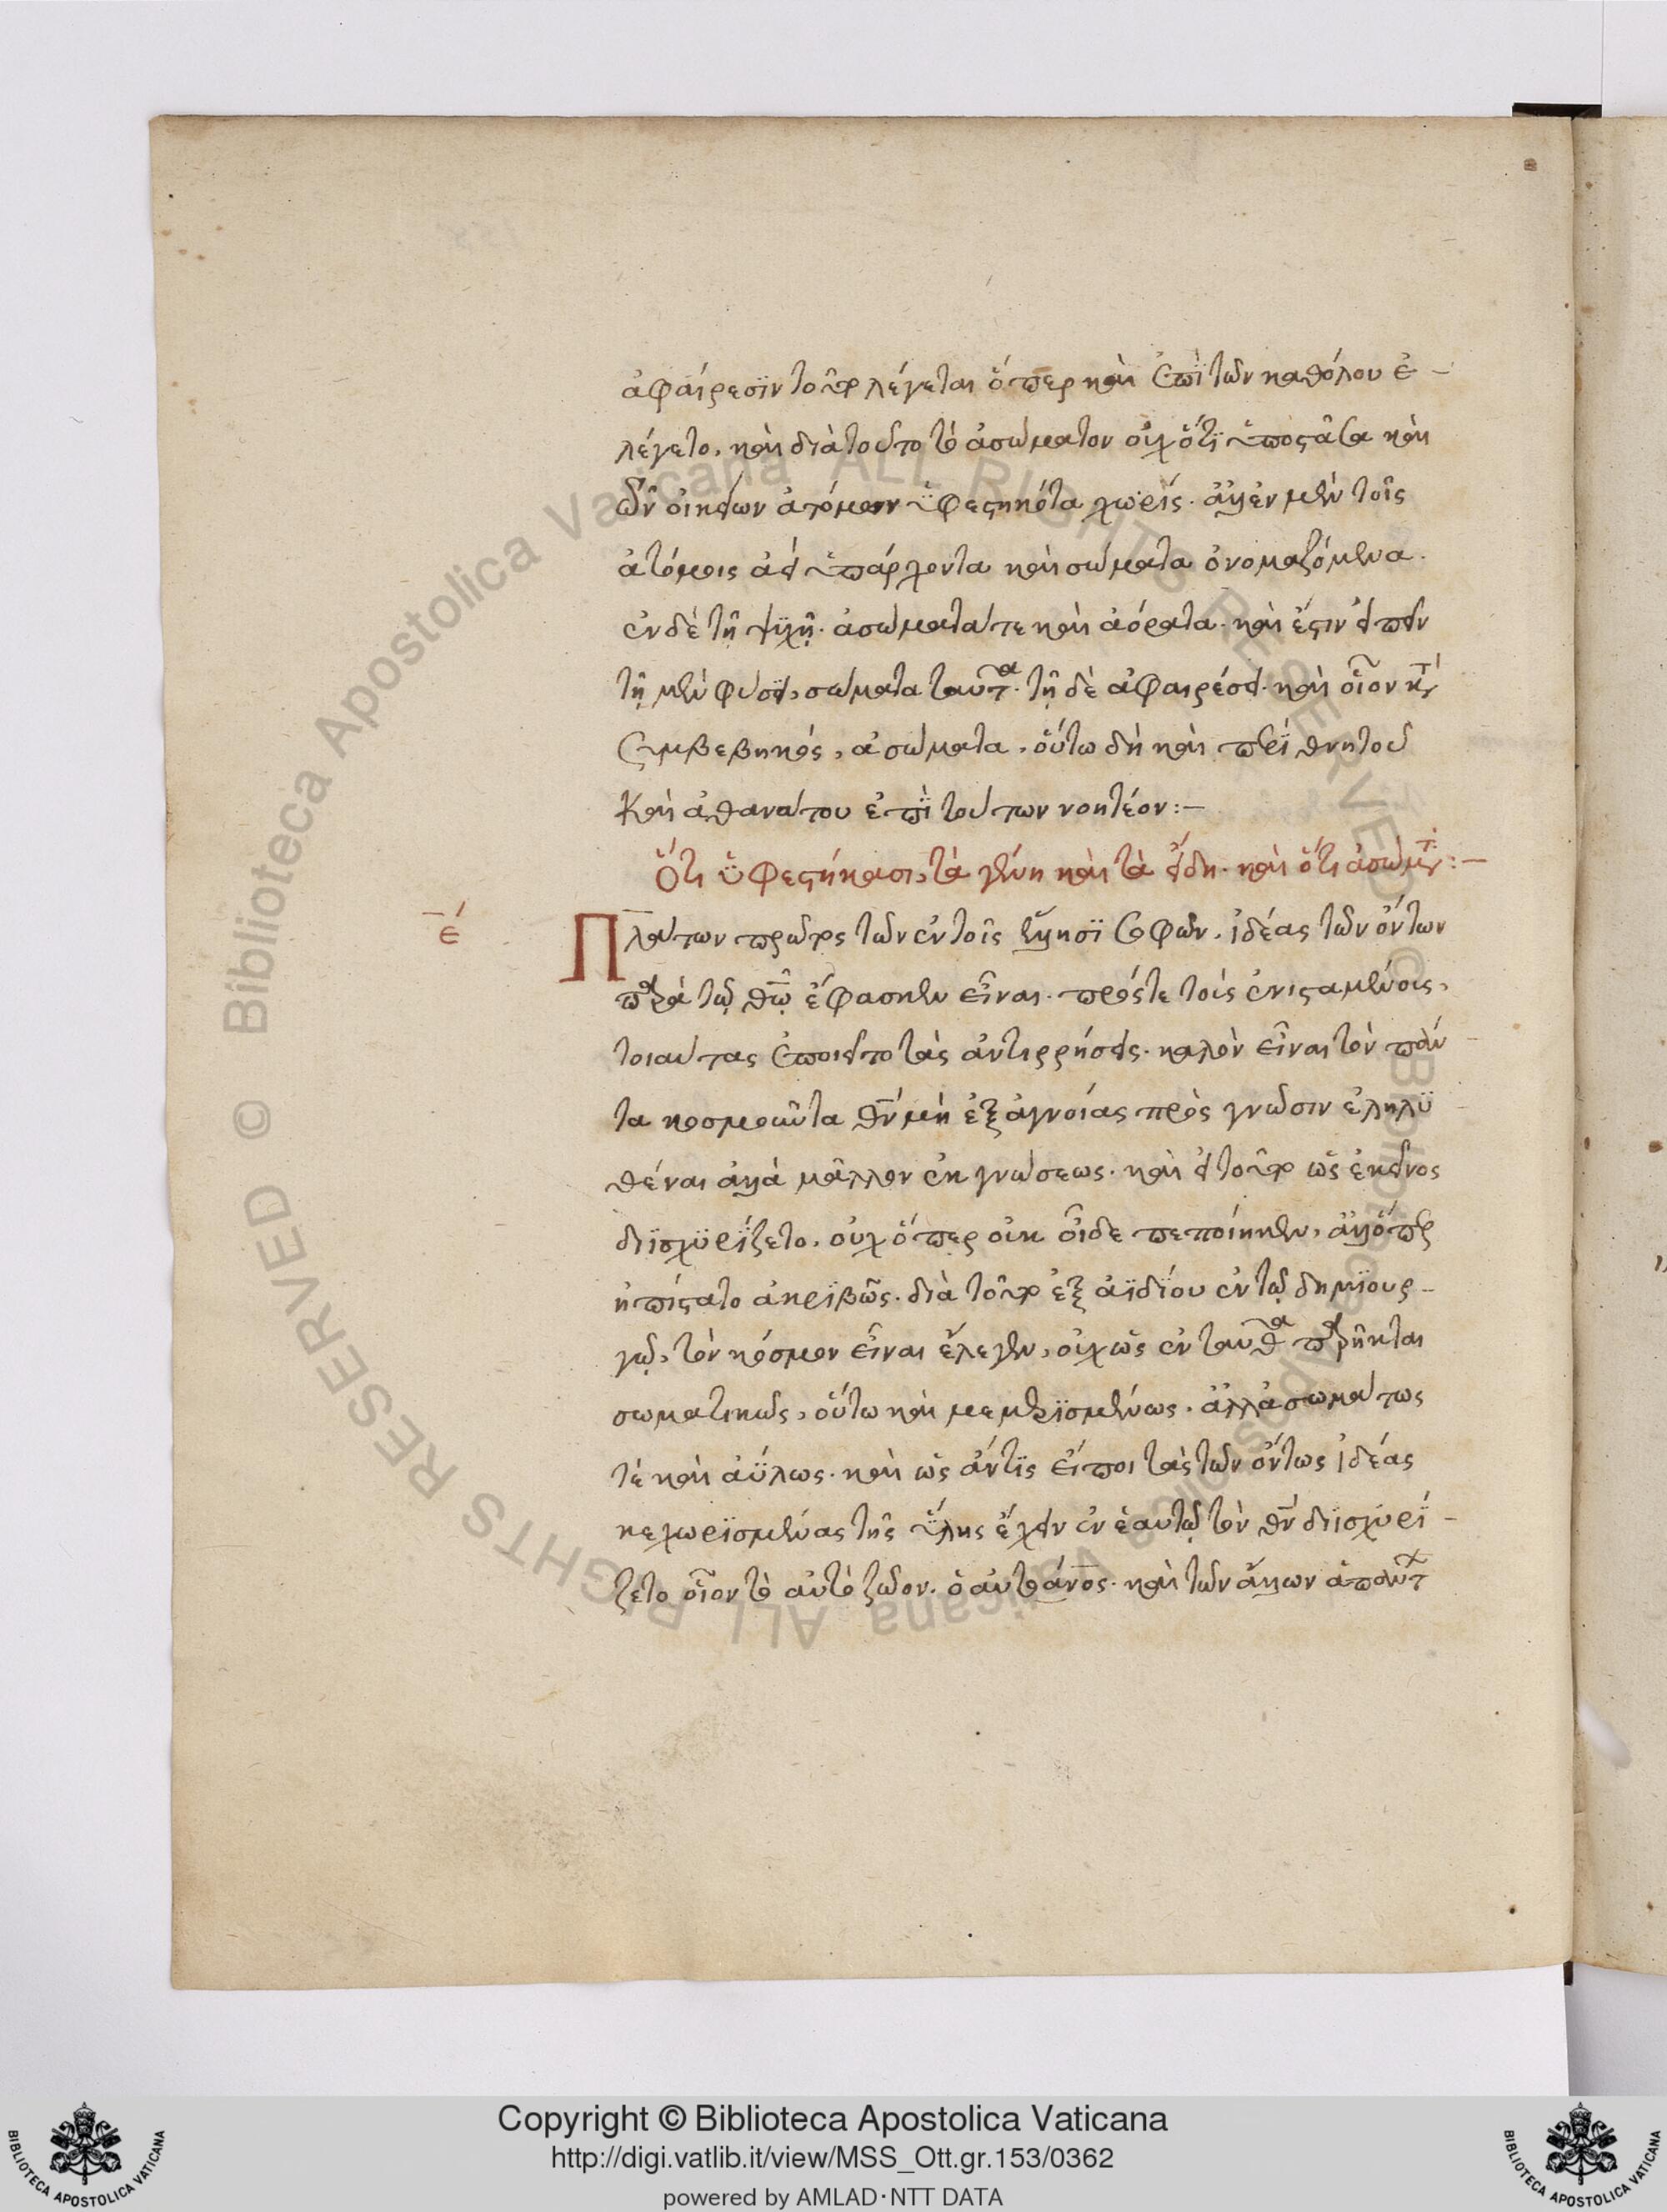 ἀφαίρεσϊν τοῦτο λέγεται ὅπερ καὶ ἐπῒ τῶν καθόλου ἐ-
λέγετο. καὶ διὰ τοῦτο τὸ ἀσώματον οὐχ ὅτϊ ὑποστᾶσα καὶ
ὧν οἰκείων ἀτόμων ὑφεστηκότα χωρίς. ἀλλ' ἐν μὲν τοῖς
ἀτόμοις ἀεὶ ὑπάρχοντα καὶ σώματα ὀνομαζόμενα.
ἐν δὲ τῇ ψυχῇ. ἀσώματα τε καὶ ἀόρατα. καὶ ἔστιν εἰπεῖν
τῇ μὲν φύσει, σώματα ταῦτα. τῇ δὲ ἀφαιρέσει. καὶ οἷον κατὰ
συμβεβηκός, ἀσώματα. οὕτω δὴ καὶ περὶ θνητοῦ
καὶ ἀθανάτου ἐπῒ τούτων νοητέον:-
Ὅτι ὑφεστήκασι, τὰ γένη καὶ τὰ εἴδη. καὶ ὅτι ἀσώματα:-
έ
Πλάτων πρῶτος τῶν ἐν τοῖς ἕλλησϊ σοφῶν. ἰδέας τῶν ὄντων
παρὰ τῷ θῶ ἔφασκεν εἶναι. πρός τε τοὺς ἐνισταμένους,
τοιαύτας ἐποιεῖτο τὰς ἀντιρρήσεις. καλὸν εἶναι τὸν πάν-
τα κοσμοῦντα θν μὴ ἐξ ἀγνοίας πρὸς γνῶσιν ἐληλϋ-
θέναι ἀλλὰ μᾶλλον ἐκ γνώσεως. καὶ εἰ τοῦτο ὡς ἐκεῖνος
διϊσχϋρΐζετο. οὐχ ὅπερ οὐκ οἶδε πεποίηκεν, ἀλλ' ὅπερ
ἠπίστατο ἀκρϊβῶς. διὰ τοῦτο ἐξ ἀϊδΐου ἐν τῷ δημϊουρ-
γῷ, τὸν κόσμον εἶναι ἔλεγεν, οὐχ ὡς ἐνταῦθα παρῆκται
σωματικῶς, οὕτω καὶ μεμερϊσμένως. ἀλλ' ἀσωμάτως
τὲ καὶ ἀΰλως. καὶ ὡς ἄν τϊς εἴποι τὰς τῶν ὄντως ἰδέας
κεχωρϊσμένας τῆς ὕλης ἔχειν ἐν ἑαυτῷ τὸν θν διϊσχϋρΐ-
ζετο οἷον τὸ αὐτὸ ζῶον. ὁ αὐτὸ άνος. καὶ τῶν ἄλλων ἁπάντων
Copyright © Biblioteca Apostolica Vaticana
http://digi.vatlib.it/view/MSS_Ott.gr.153/0362
powered by AMLAD·NTT DATA